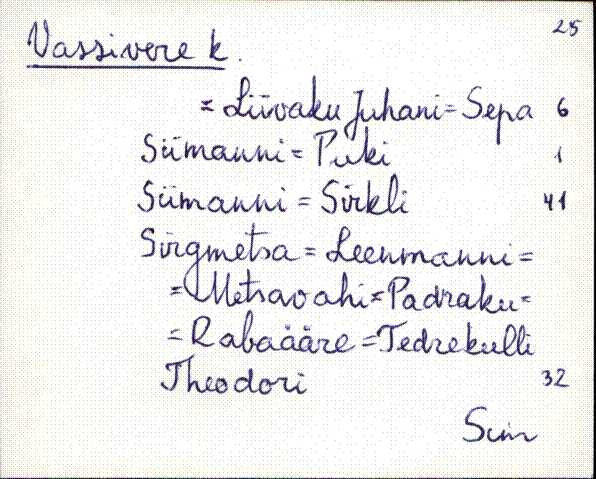 25
Vassivere k.
= Liivaku Juhani = Sepa 6
Siimanni = Puki 1
Siimanni = Sirkli 41
Sirgmetsa = Leenmanni =
= Metsavahi = Padraku =
= Rabaääre = Tedrekulli
Theodori 32